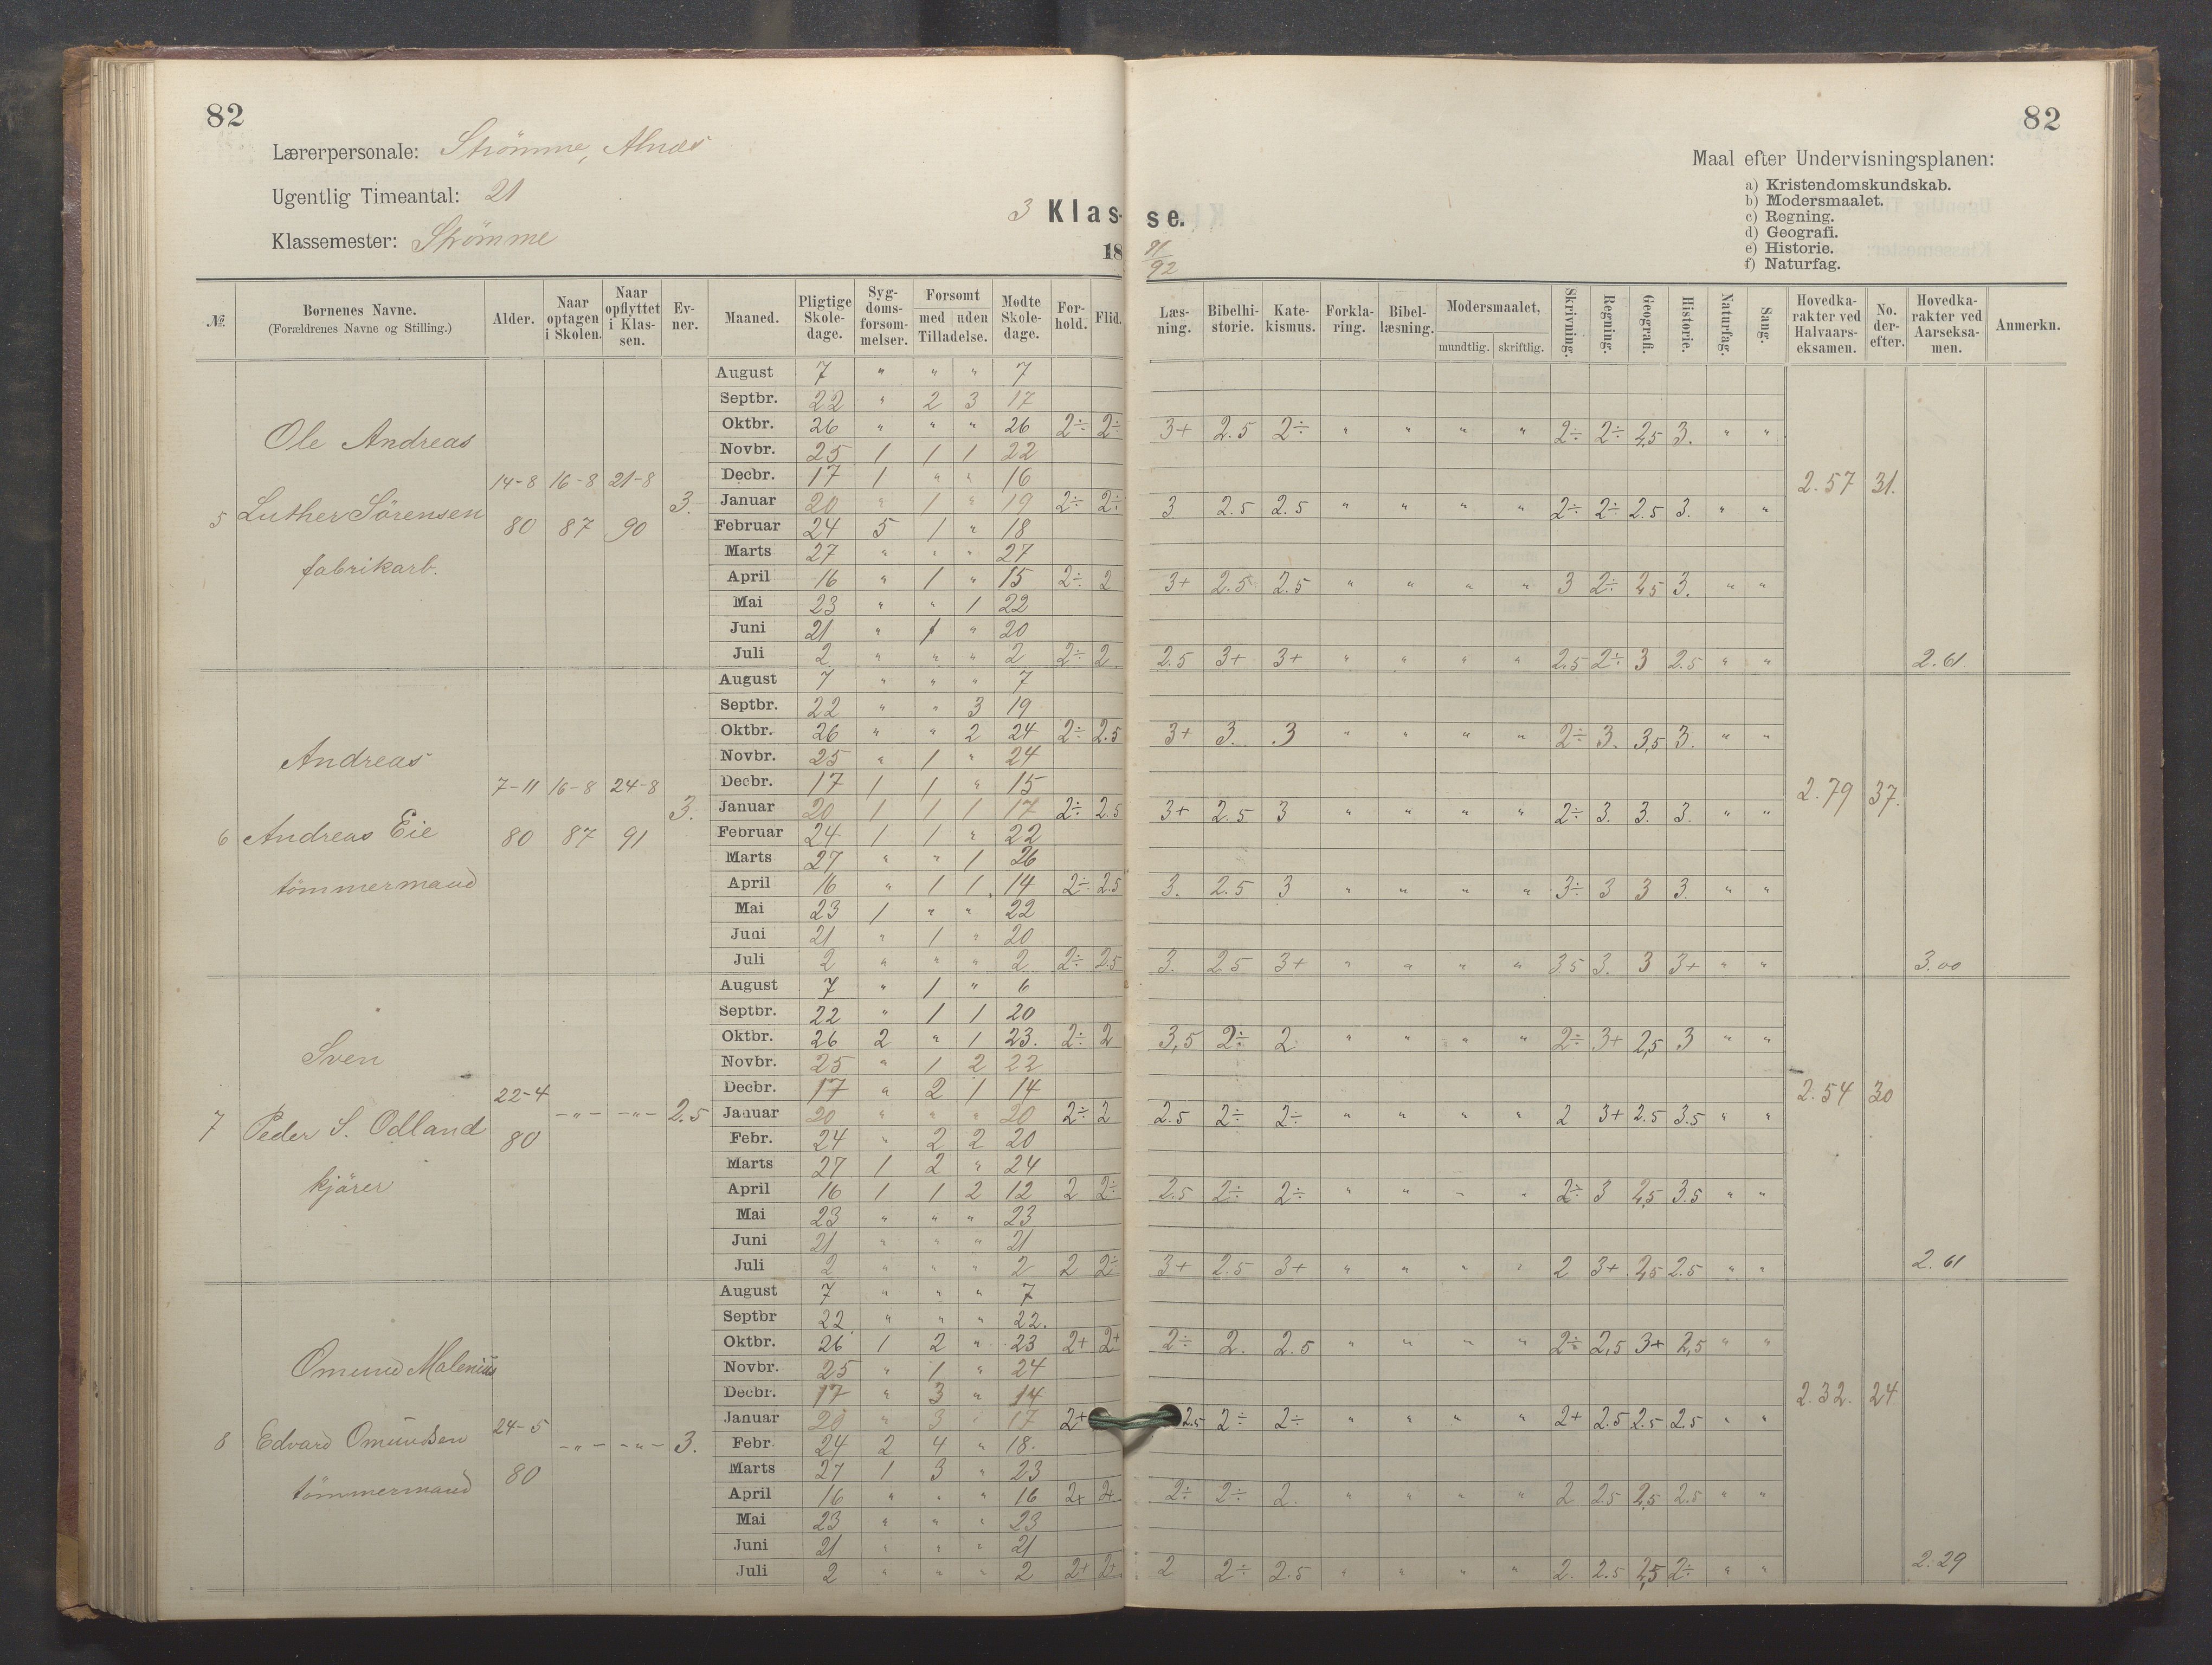 82
82
Lærerpersonale: Strömme, Alnæs
Ugentlig Timeantal: 21
Klassemester: Strömme
3 Klas-se.
18 91/92
Maal efter Undervisningsplanen:
a) Kristendomskundskab.
b) Modersmaalet.
c) Regning.
d) Geografi.
e) Historie.
f) Naturfag.
№ Børnenes Navne. (Forældrenes Navne og Stilling.) Alder. Naar optagen i Skolen. Naar opflyttet i Klassen. Evner. Maaned. Pligtige Skoledage. Sygdomsforsommelser. Forsømt med uden Tilladelse. Mødte Skoledage. Forhold. Flid. Læsning. Bibelhistorie. Katekismus. Forklaring. Bibellæsning. Modersmaalet, mundtlig. skriftlig. Skrivning. Regning. Geografi. Historie. Naturfag. Sang. Hovedkarakter ved Halvaarseksamen. No. derefter. Hovedkarakter ved Aarseksamen. Anmerkn.
5 Ole Andreas
Luther Sörensen
fabrikarb.
14-8 80 16-8 87 21-8 90 3.
August 7 " " " 7
Septbr. 22 " 2 3 17
Oktbr. 26 " " " 26 2÷ 2÷ 3+ 2.5 2÷ " " " " 2÷ 2÷ 2,5 3. " "
Novbr. 25 1 1 1 22
Decbr. 17 1 " " 16
2.57 31.
Januar 20 " 1 " 19 2÷ 2÷ 3 2.5 2.5 " " " " 2÷ 2÷ 2.5 3. " "
Februar 24 5 1 " 18
Marts 27 " " " 27
April 16 " 1 " 15 2÷ 2 3+ 2.5 2.5 " " " " 3 2÷ 2,5 3. " "
Mai 23 " " 1 22
Juni 21 " 1 " 20
Juli 2 " " " 2 2÷ 2 2.5 3+ 3+ " " " " 2.5 2÷ 3 2.5 " " 2.61
6 Andreas
Andreas Eie
tömmermand
7-11 80 16-8 87 24-8 91 3.
August 7 " " " 7
Septbr. 22 " " 3 19
Oktbr. 26 " " 2 24 2÷ 2.5 3+ 3. 3 " " " " 2÷ 3. 3,5 3. " "
Novbr. 25 " 1 " 24
Decbr. 17 1 1 " 15
2.79 37.
Januar 20 1 1 1 17 2÷ 2.5 3+ 2.5 3 " " " " 2÷ 3. 3. 3. " "
Februar 24 1 1 " 22
Marts 27 " " 1 26
April 16 " 1 1 14 2÷ 2.5 3. 2.5 3 " " " " 3÷ 3 3 3. " "
Mai 23 1 " " 22
Juni 21 " 1 " 20
Juli 2 " " " 2 2÷ 2.5 3. 2.5 3+ " " " " 3.5 3. 3 3+ " " 3.00
7 Sven
Peder S. Odland
kjörer
22-4 80 -"- -"- 2.5
August 7 " 1 " 6
Septbr. 22 " 1 1 20
Oktbr. 26 2 " 1 23. 2÷ 2 3,5 2÷ 2 " " " " 2÷ 3+ 2,5 3 " "
Novbr. 25 " 1 2 22
Decbr. 17 " 2 1 14
2.54 30
Januar 20 " " " 20 2÷ 2 2.5 2÷ 2÷ " " " " 2 3+ 2.5 3.5 " "
Febr. 24 " 2 2 20
Marts 27 1 2 " 24
April 16 1 1 2 12 2 2÷ 2.5 2÷ 2÷ " " " " 2÷ 3 2,5 3.5 " "
Mai 23 " " " 23
Juni 21 " " " 21
Juli 2 " " " 2 2 2÷ 3+ 2.5 3+ " " " " 2 3+ 2,5 2.5 " " 2.61
8 Omund Malenius
Edvard Omundsen
tömmermand
24-5 80 -"- -"- 3.
August 7 " " " 7
Septbr 22 " " " 22.
Oktbr. 26 1 2 " 23 2+ 2+ 2÷ 2. 2.5 " " " " 2÷ 2,5 3+ 2,5 " "
Novbr. 25 " 1 " 24
Decbr. 17 " 3 " 14
2.32. 24
Januar 20 " 3 " 17 2+ 2.5 2÷ 2÷ " " " " 2+ 2.5 2.5 2.5 " "
Febr. 24 2 4 " 18.
Marts 27 1 3 " 23
April 16 " " " 16 2+ 2+ 2÷ 2÷ 2. " " " " 2 2.5 2,5 2.5 " "
Mai 23 " " " 23
Juni 21 " " " 21
Juli 2 " " " 2 2+ 2+ 2 2÷ 2.5 " " " " 2. 2.5 2,5 2÷ " " 2.29